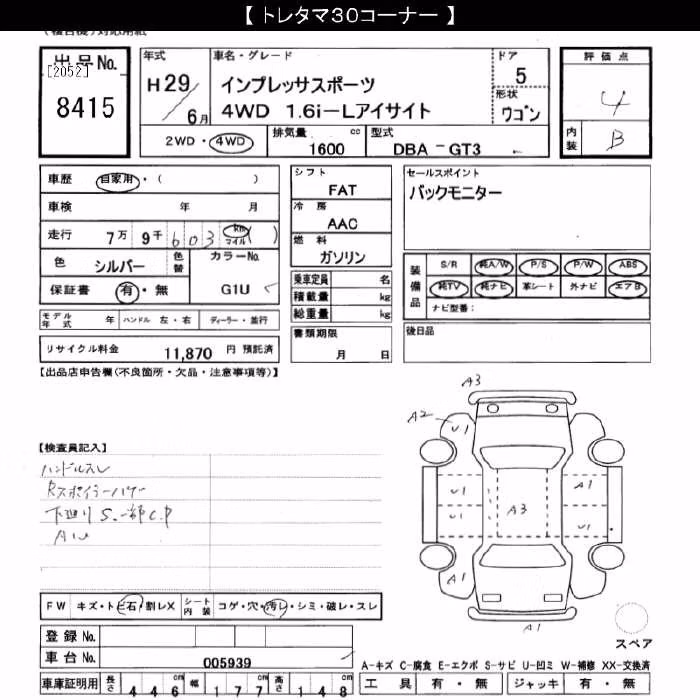 【 トレタマ30コーナー 】
(複合機)対応用紙
出品No.
[2052]
8415
年式
H29/6月
車名・グレード
インプレッサスポーツ
4WD 1.6i-Lアイサイト
ドア
5
形状
ワゴン
評価点
4
内装
B
2WD・4WD
排気量 cc
1600
型式
DBA-GT3
車歴 自家用・( )
車検 年 月
走行 7万 9千 603 km マイル ( )
色 シルバー 色替
カラーNo.
G1U
保証書 有・無
モデル年式 年 ハンドル 左・右 ディーラー・並行
リサイクル料金 11,870 円 預託済
シフト
FAT
冷房
AAC
燃料
ガソリン
乗車定員 名
積載量 kg
総重量 kg
書類期限
月 日
セールスポイント
バックモニター
装備品
S/R 純A/W P/S P/W ABS
純TV 純ナビ 革シート 外ナビ エアB
ナビ型番:
後日品
【出品店申告欄(不良箇所・欠品・注意事項等)】
【検査員記入】
ハンドルスレ
下廻りS、一部C.P
FW キズ・トビ石・割レX シート内装 コゲ・穴・汚レ・シミ・破レ・スレ
登録No.
車台No. 005939
車庫証明用 長さ 446 cm 幅 177 cm 高さ 148 cm
A3
A2
U1
U1
A1
A3
U1
U1
A1
A1
A1
スペア
A-キズ C-腐食 E-エクボ S-サビ U-凹ミ W-補修 XX-交換済
工具 有・無 ジャッキ 有・無